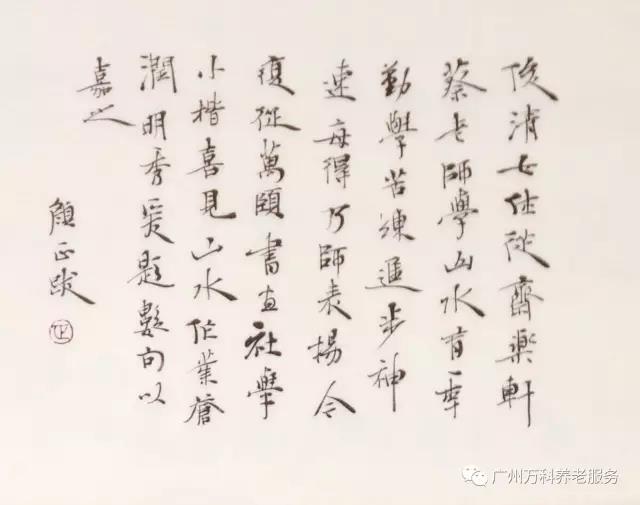 俊清女仕從齋樂軒
蔡老師學山水有年
勤學苦練進步神
速每得乃師表揚今
復從萬頤書畫社學
小楷喜見山水作業蒼
潤明秀爰題數句以
嘉之
顏正跋
正
广州万科养老服务